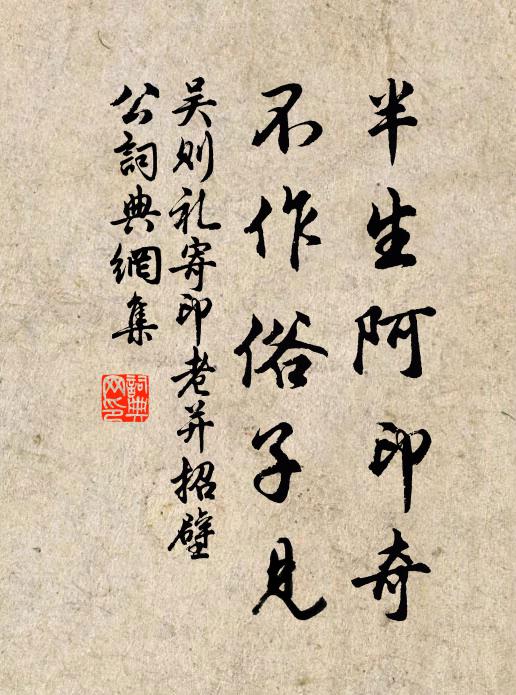 半生阿印奇
不作俗子見
吴则礼寄印老并招璧
公詞典網集
詞典网印